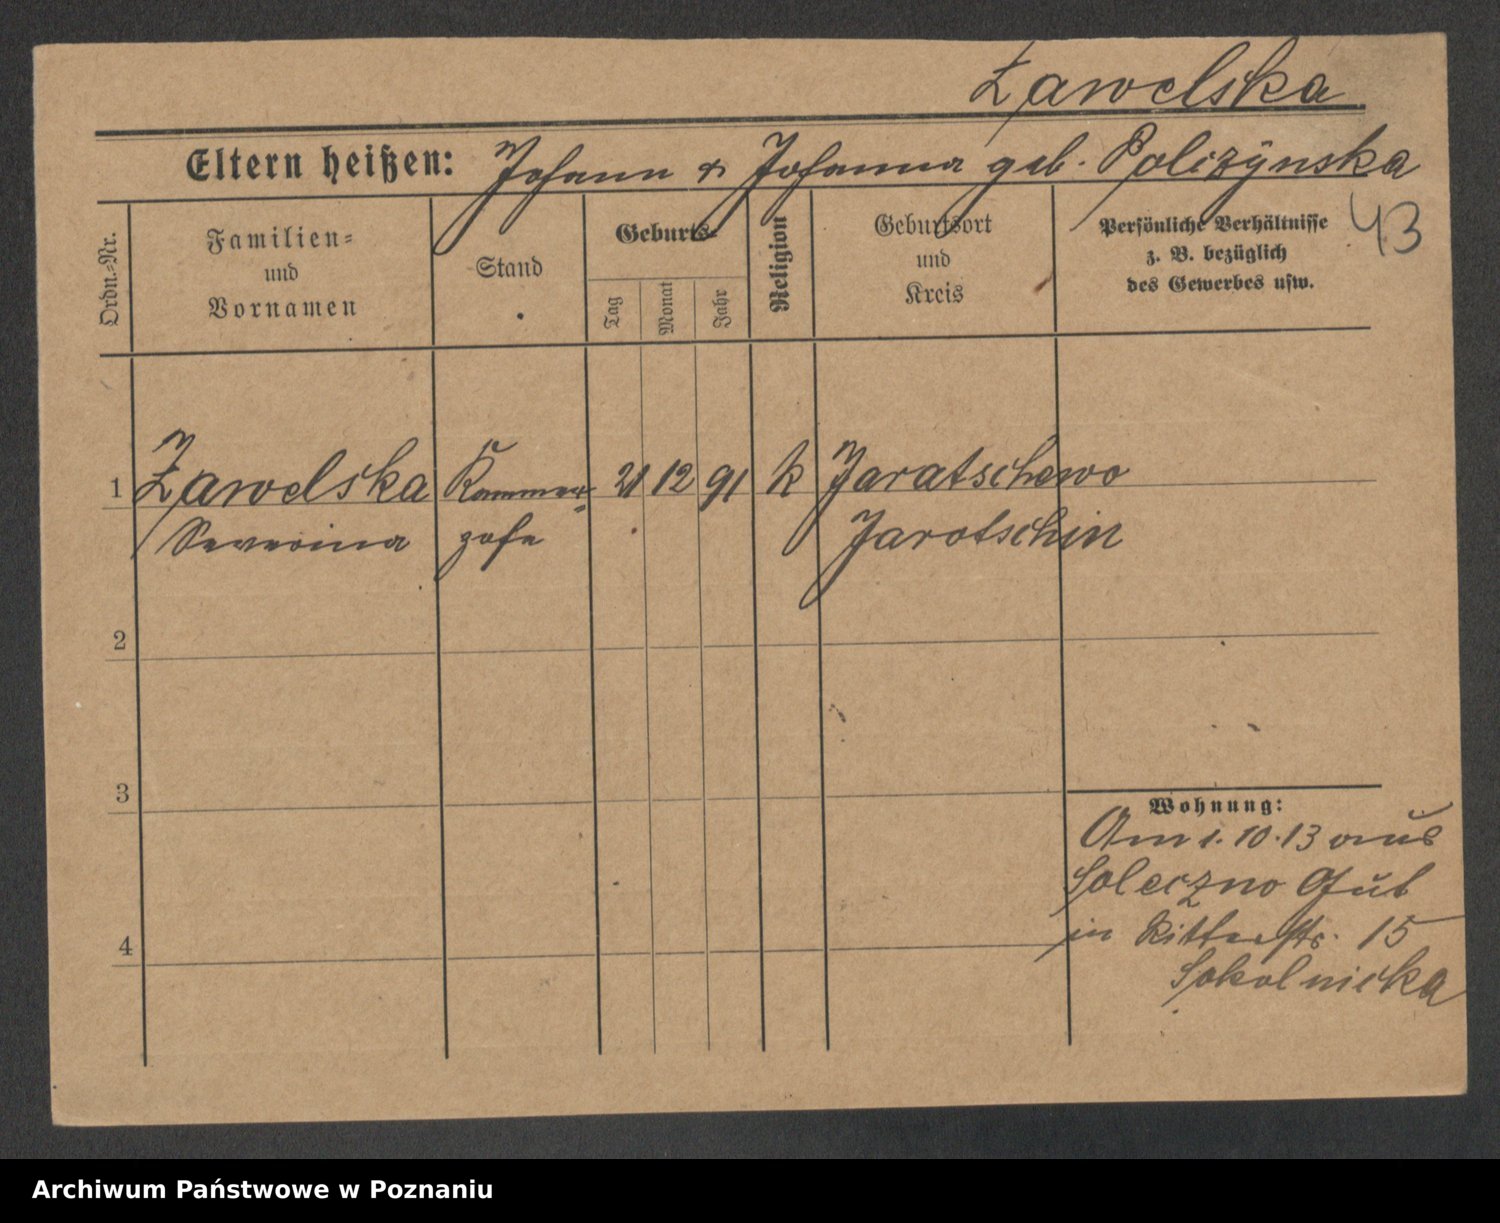 Zawelska
Eltern heißen: Johann & Johanna geb. Polczÿnska
43
Ordn.-Nr.
Familien-
und
Vornamen
Stand
Geburts-
Tag
Monat
Jahr
Religion
Geburtsort
und
Kreis
Persönliche Verhältnisse
z. B. bezüglich
des Gewerbes usw.
1 Zawelska Kammer- 21 12 91 k Jaratschewo
Severina zofe Jarotschin
2
3
4
Wohnung:
Am 1.10.13 aus
Soleczno Gut
in Ritterstr. 15
Sokolnicka
Archiwum Państwowe w Poznaniu